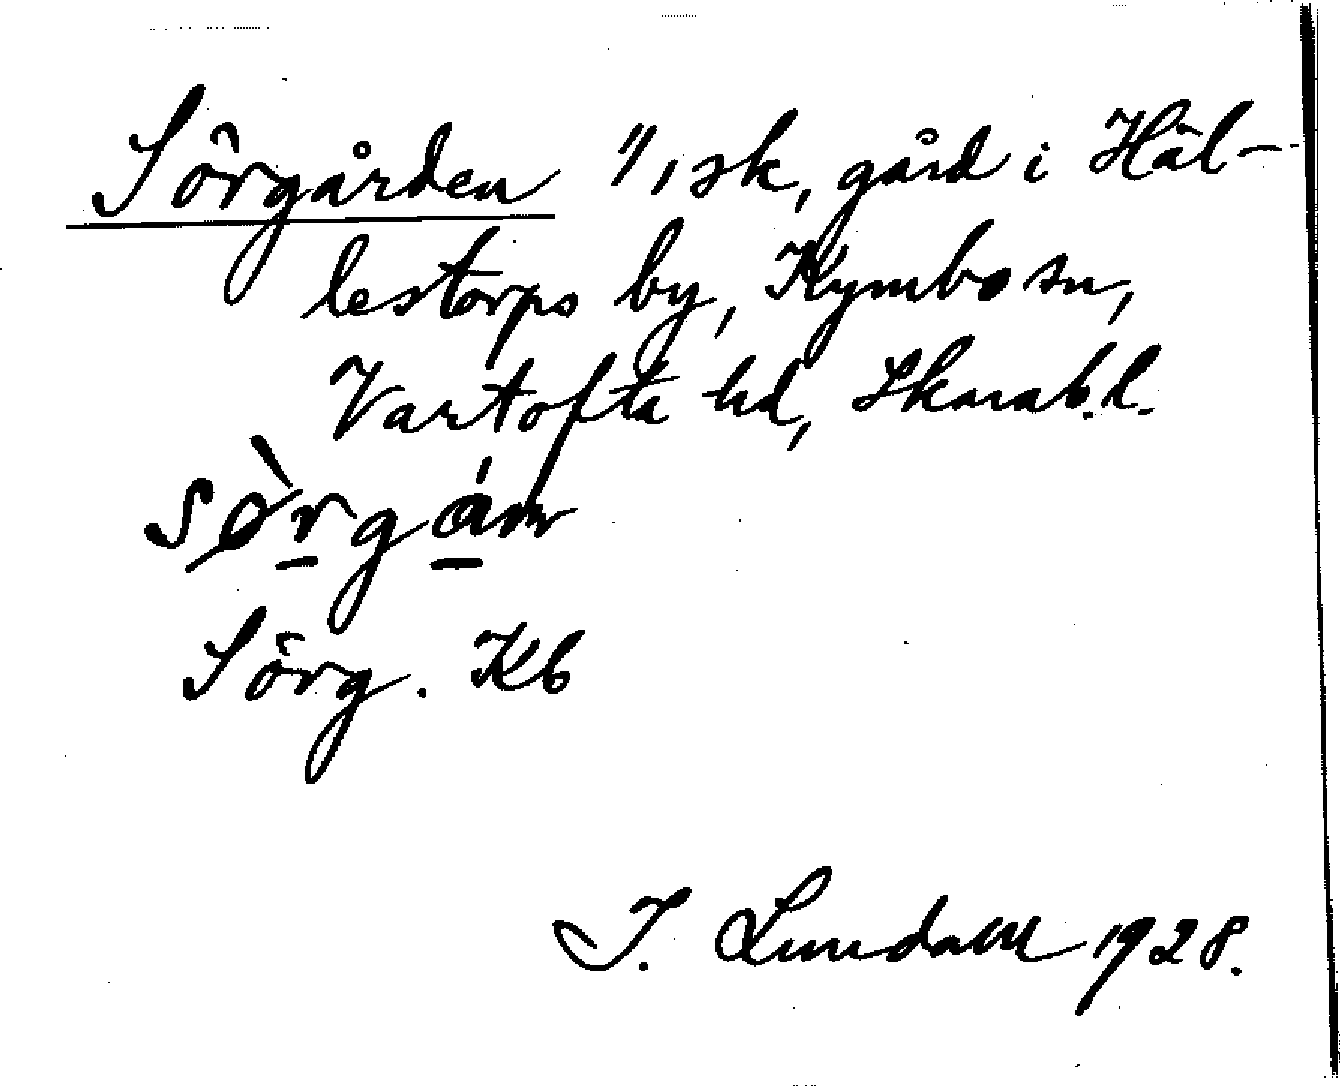 Sörgården 1/1 sk, gård i Häl-
lestorps by, Kymbo sn,
Vartofta hd, Skarab.l.
Sörg. Kb
I. Lundahl 1928.